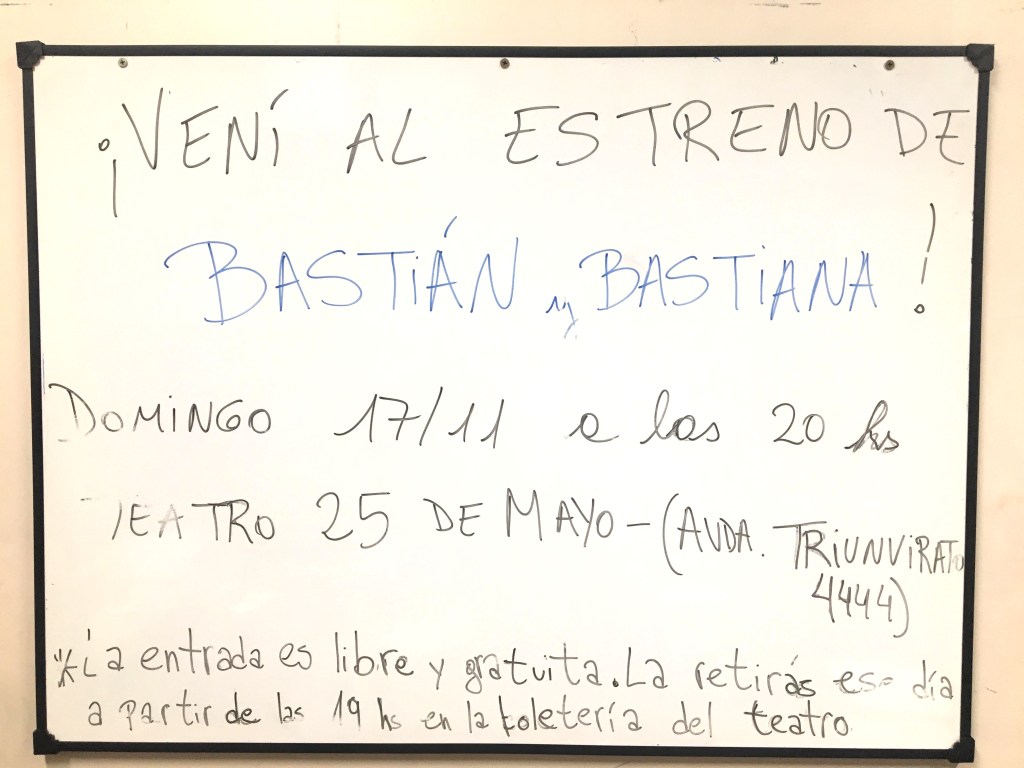 ¡VENÍ AL ESTRENO DE
BASTIÁN y BASTIANA!
DOMINGO 17/11 a las 20 hs
TEATRO 25 DE MAYO - (AVDA. TRIUNVIRATO
4444)
*La entrada es libre y gratuita. La retirás ese día
a partir de las 19 hs en la boletería del teatro.